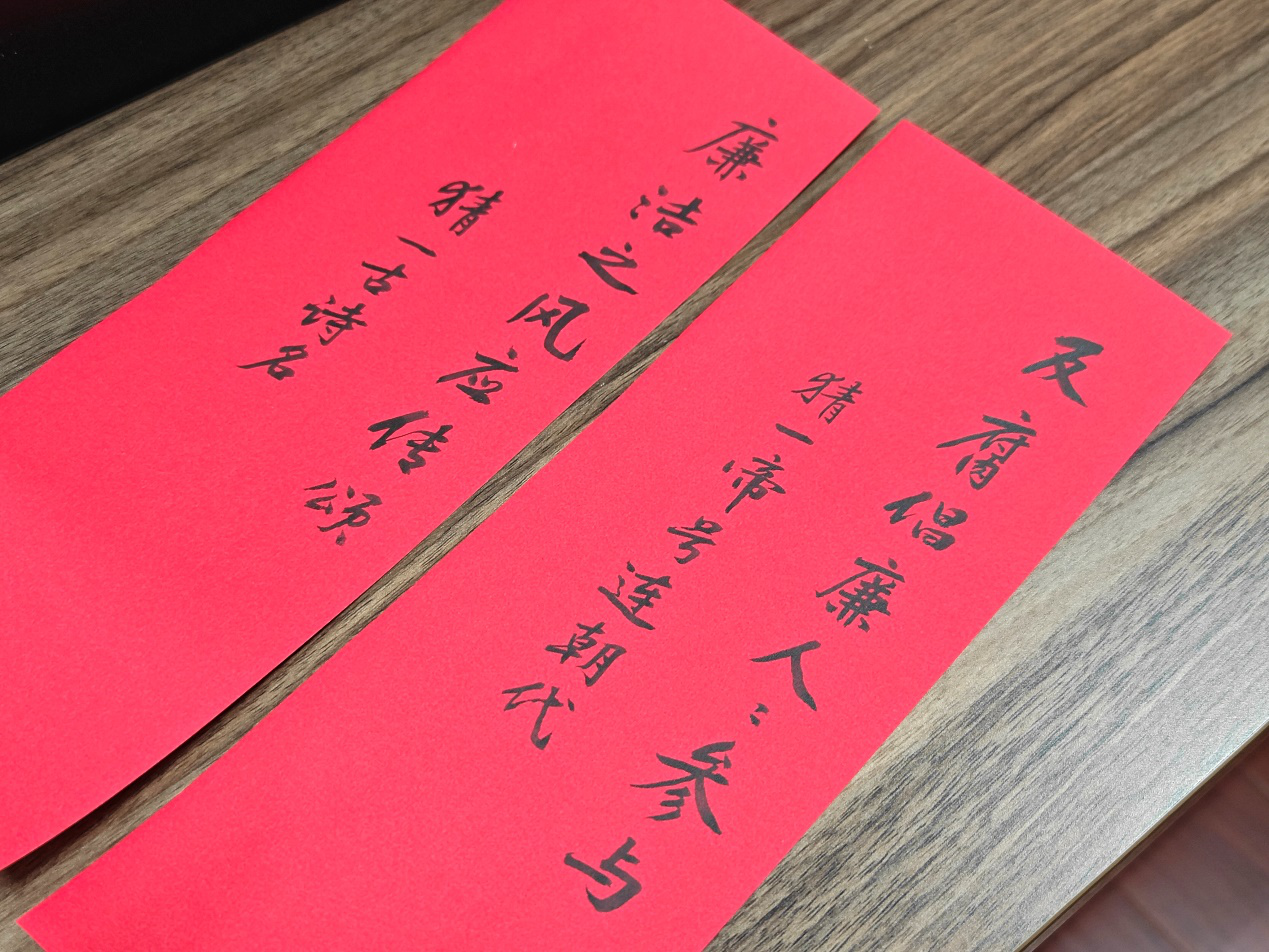 反腐倡廉人〻参与
猜一帝号连朝代
廉洁之风应传颂
猜一古诗名